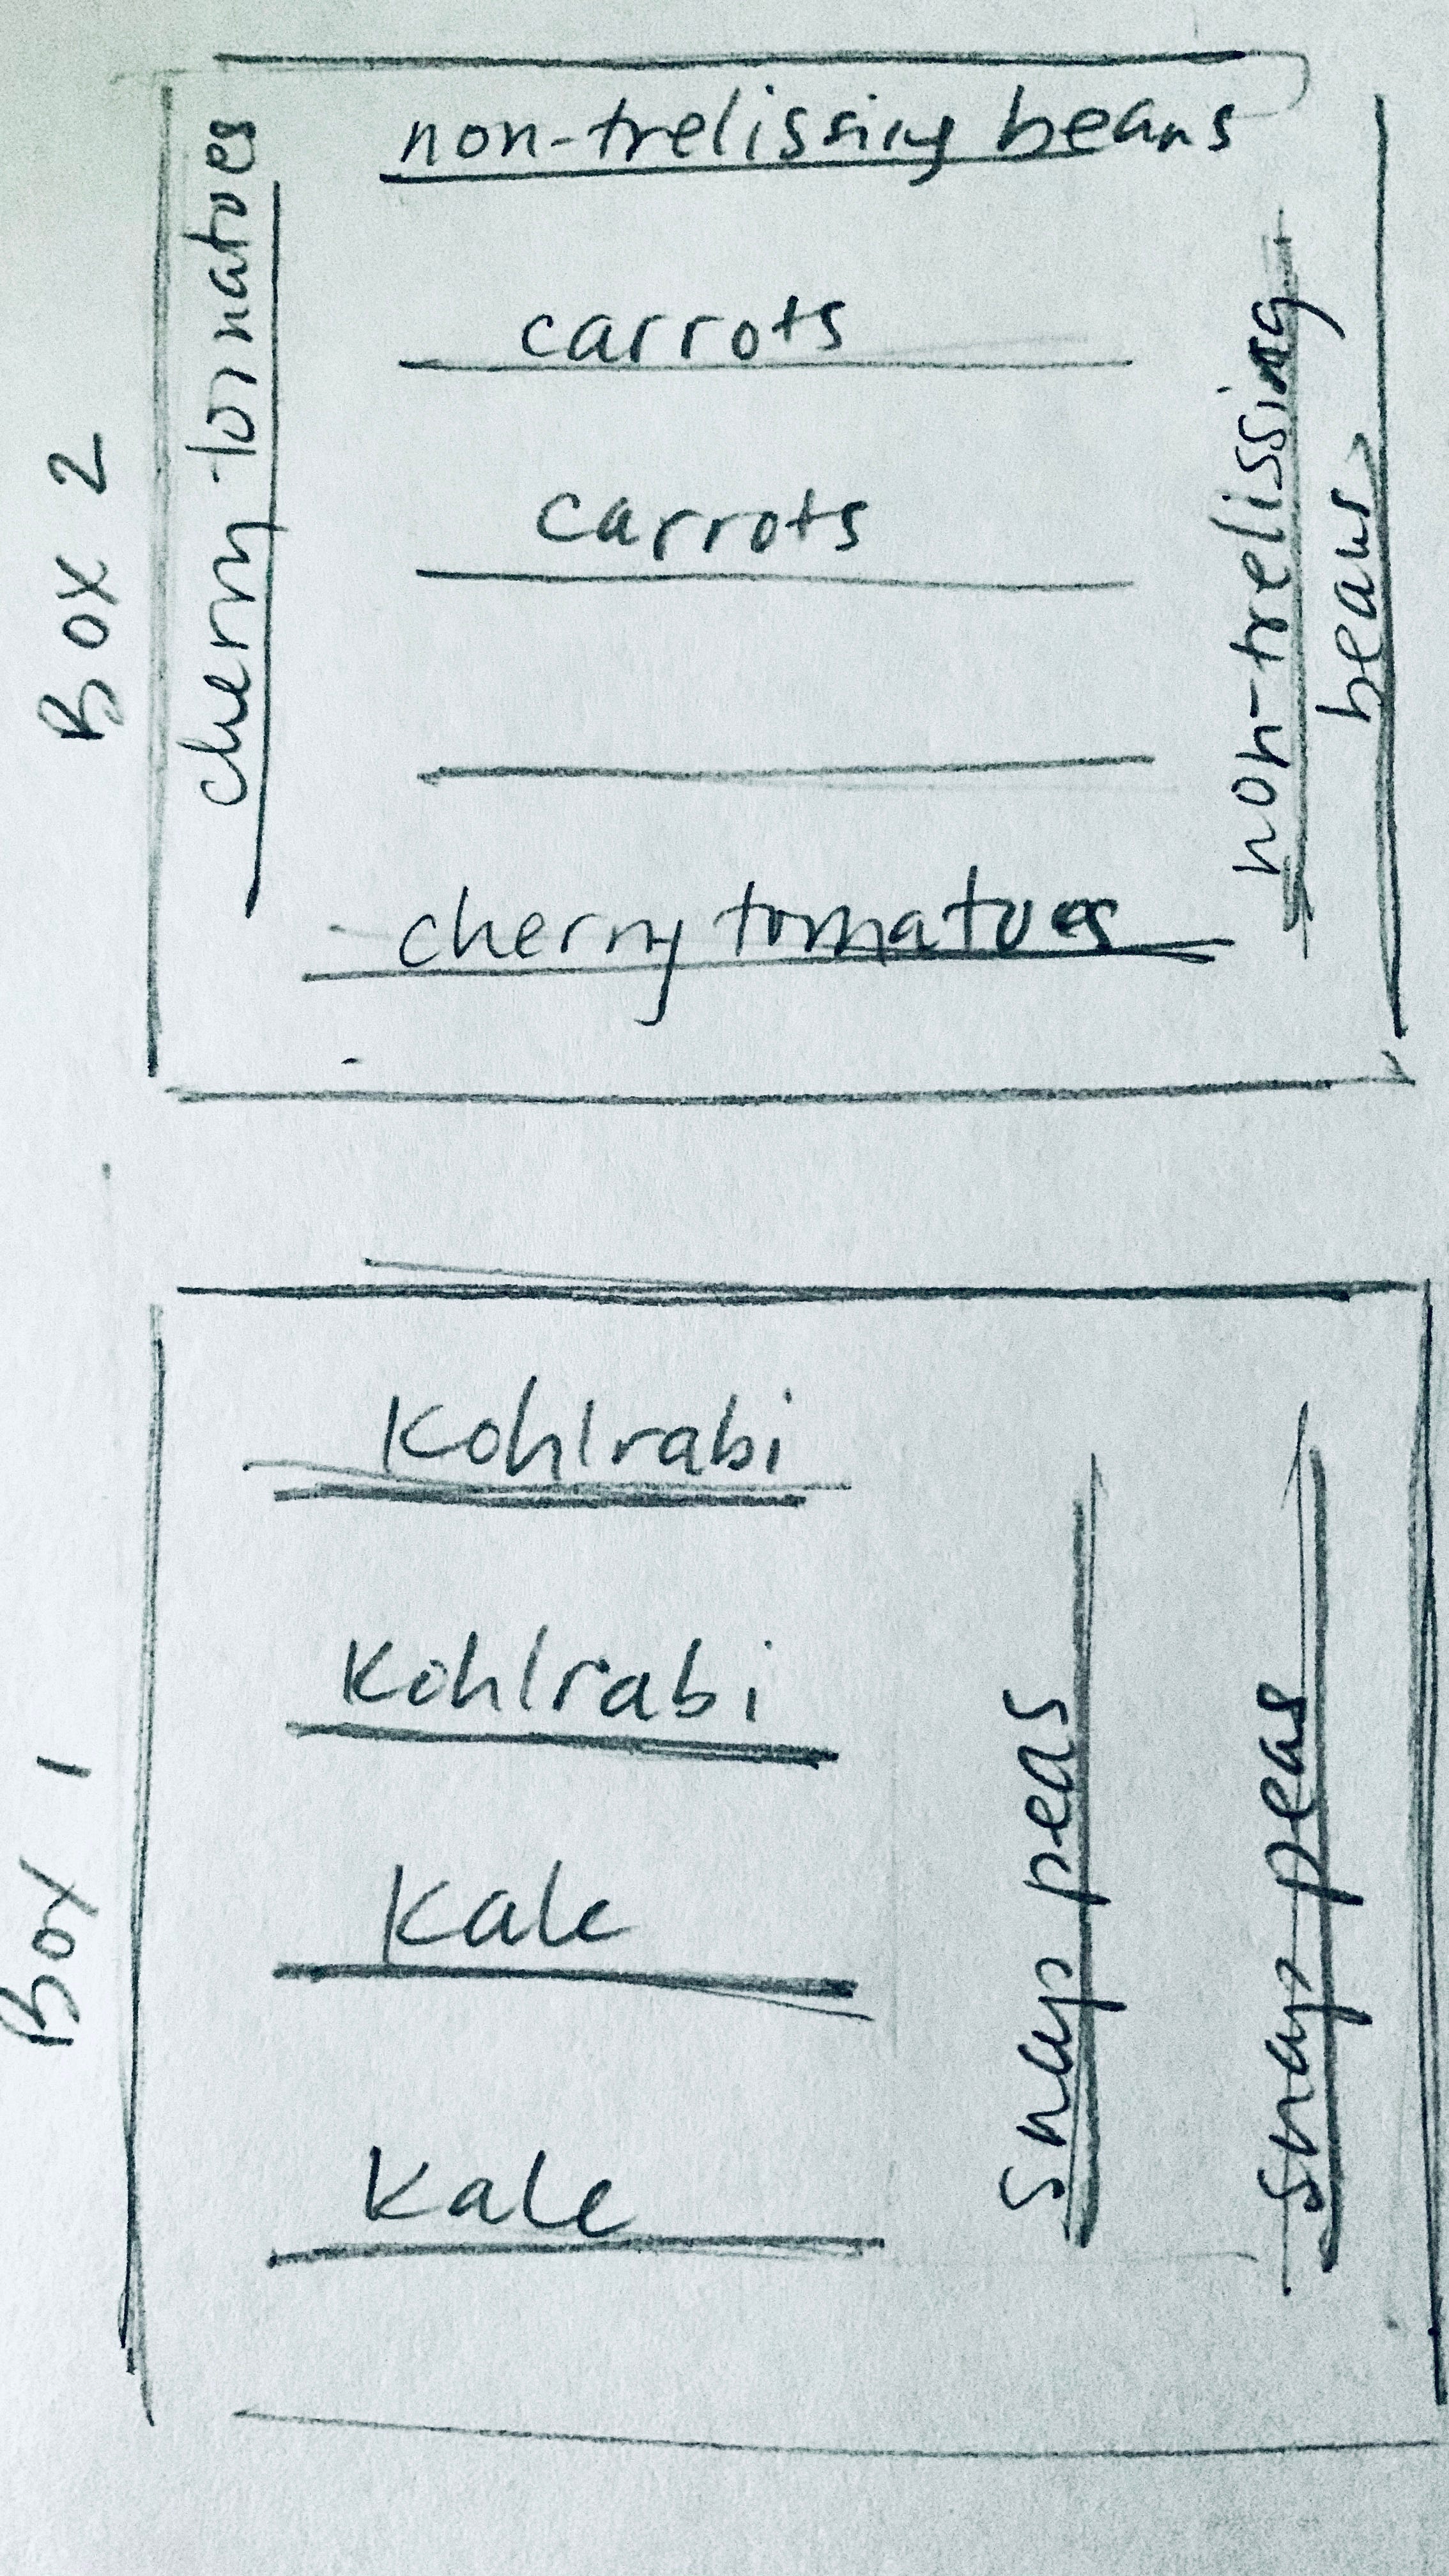 Box 2
cherry tomatoes
non-trelissing beans
carrots
carrots
cherry tomatoes
non-trelissing
beans
Box 1
Kohlrabi
Kohlrabi
Kale
Kale
Snap peas
Snap peas